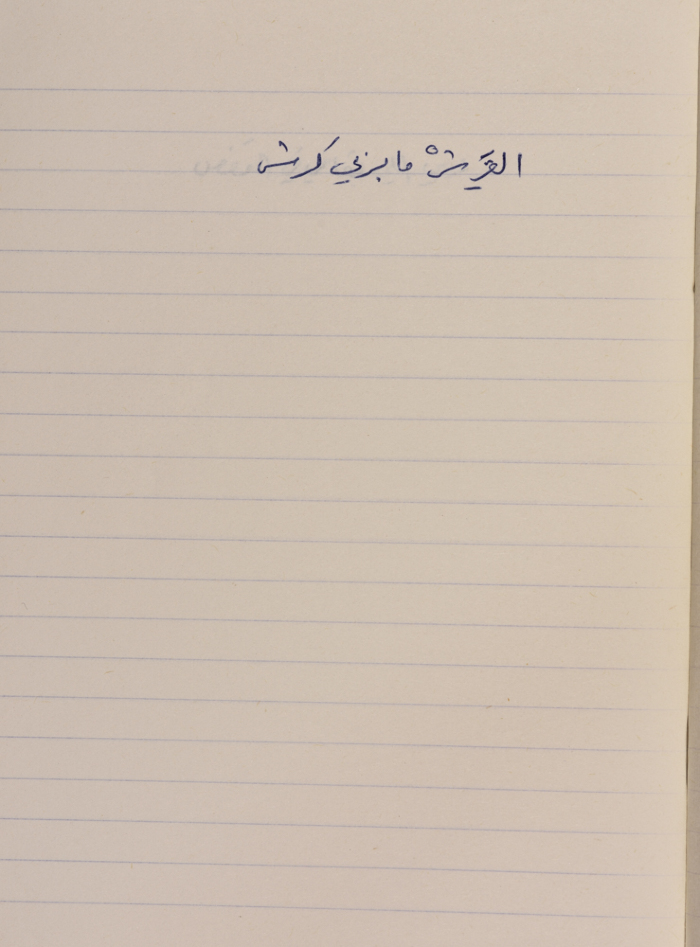 القَريشْ ما بزبي كرش